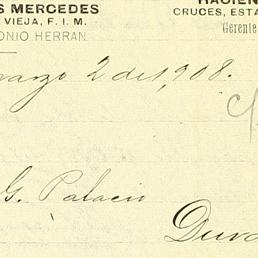 S MERCEDES
VIEJA, F. I. M.
ONIO HERRAN.
HACIEN
CRUCES, ESTA
Gerente
marzo 2 de 1,908.
G. Palacio
Dura